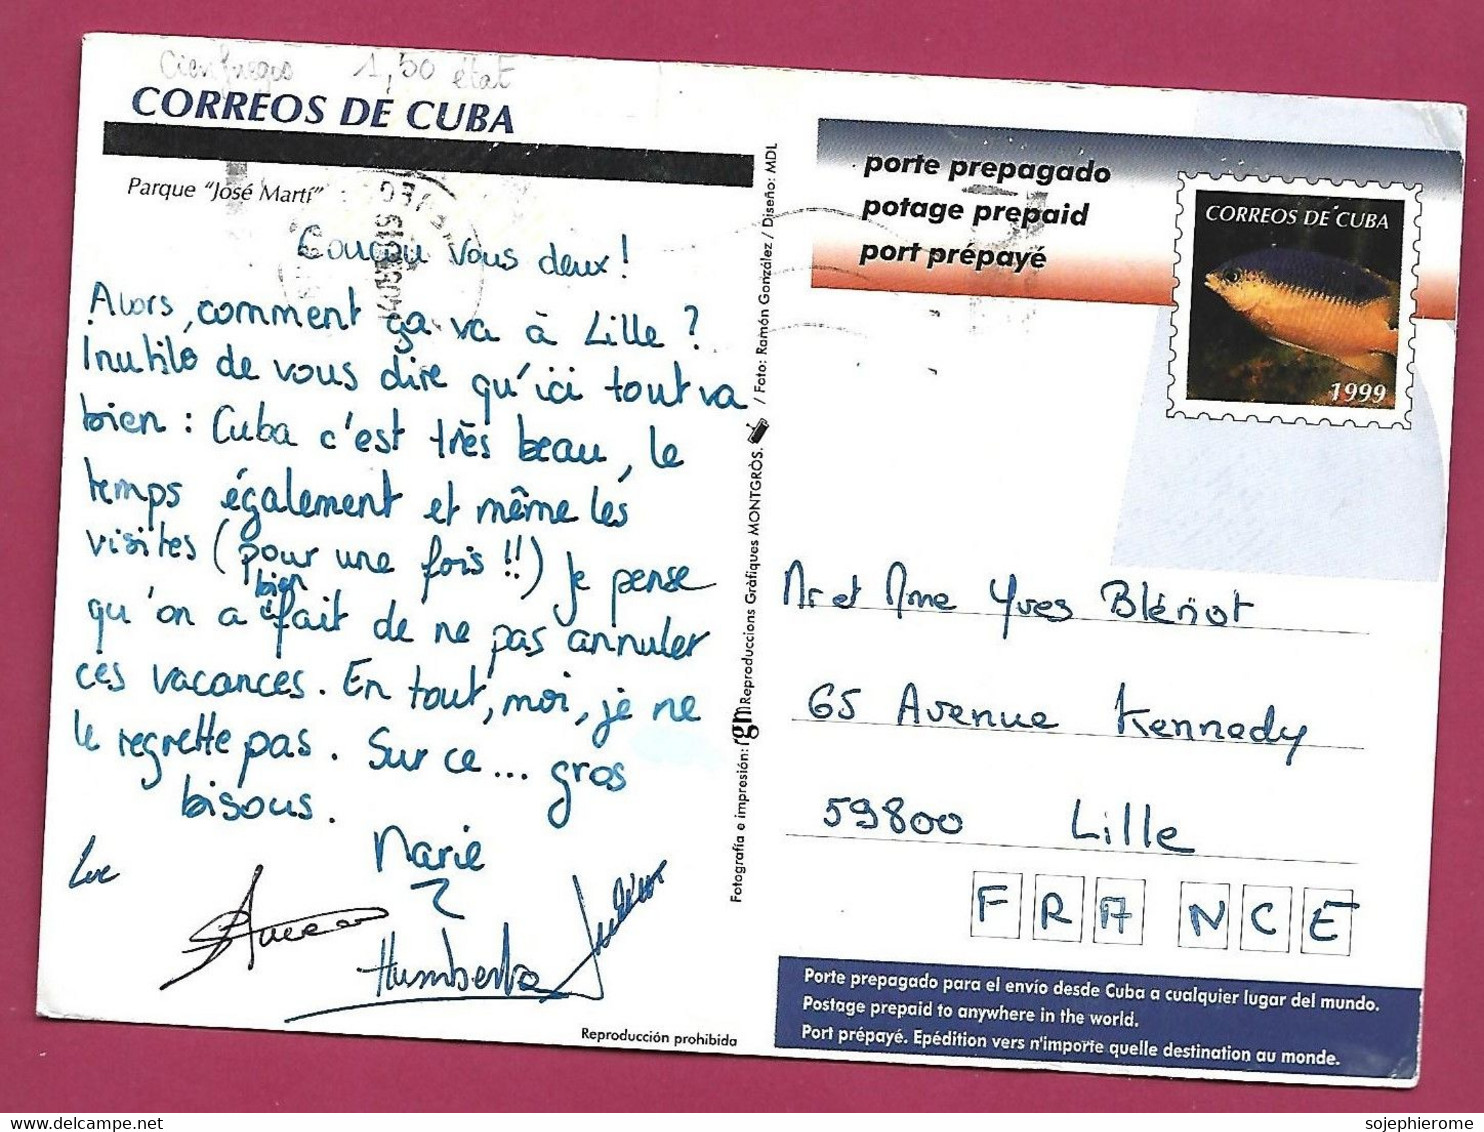 Cienfuegos 1,50 état
CORREOS DE CUBA
Parque "José Martí"
Coucou vous deux !
Alors, comment ça va à Lille ?
Inutile de vous dire qu'ici tout va
bien : Cuba c'est très beau, le
temps également et même les
visites (pour une fois !!) Je pense
bien
qu'on a fait de ne pas annuler
ces vacances. En tout, moi, je ne
le regrette pas. Sur ce... gros
bisous.
Marie
Luc
Humberto
Reproducción prohibida
Fotografía e impresión: rgm Reproduccions Gràfiques MONTGRÒS. / Foto: Ramón González / Diseño: MDL
porte prepagado
potage prepaid
port prépayé
CORREOS DE CUBA
1999
Mr et Mme Yves Blériot
65 Avenue Kennedy
59800 Lille
FRANCE
Porte prepagado para el envío desde Cuba a cualquier lugar del mundo.
Postage prepaid to anywhere in the world.
Port prépayé. Epédition vers n'importe quelle destination au monde.
sojephierome